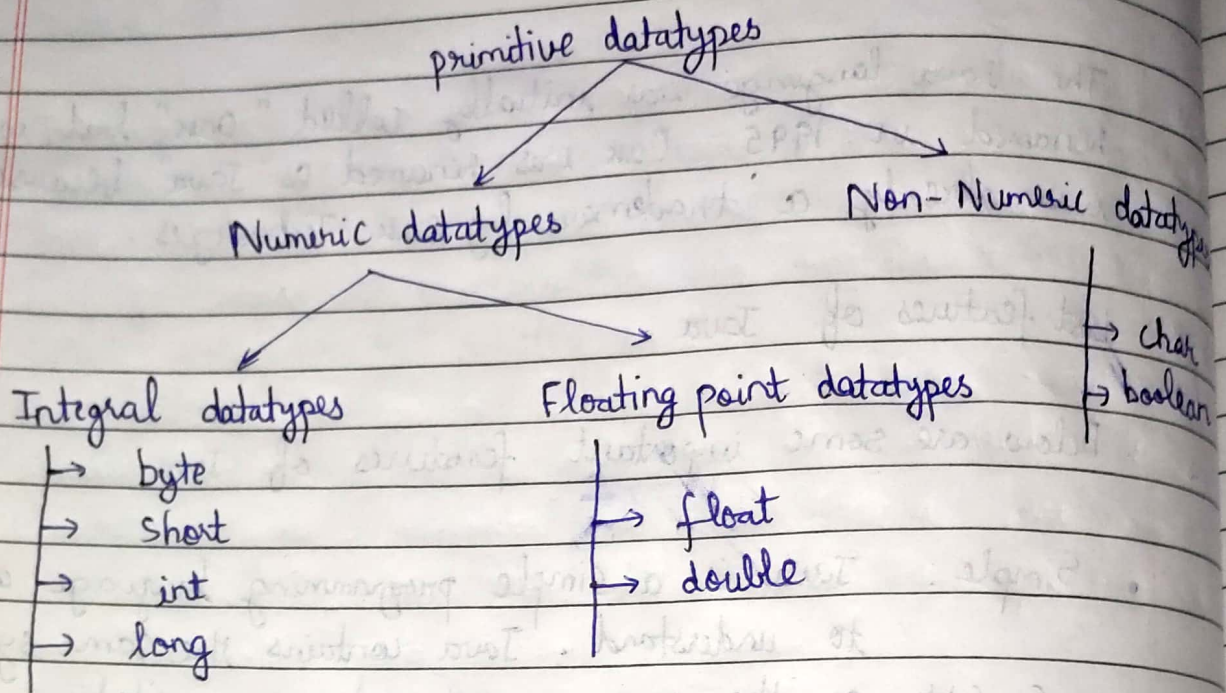 primitive datatypes
Numeric datatypes
Non-Numeric datatypes
Integral datatypes
byte
short
int
long
Floating point datatypes
float
double
char
boolean